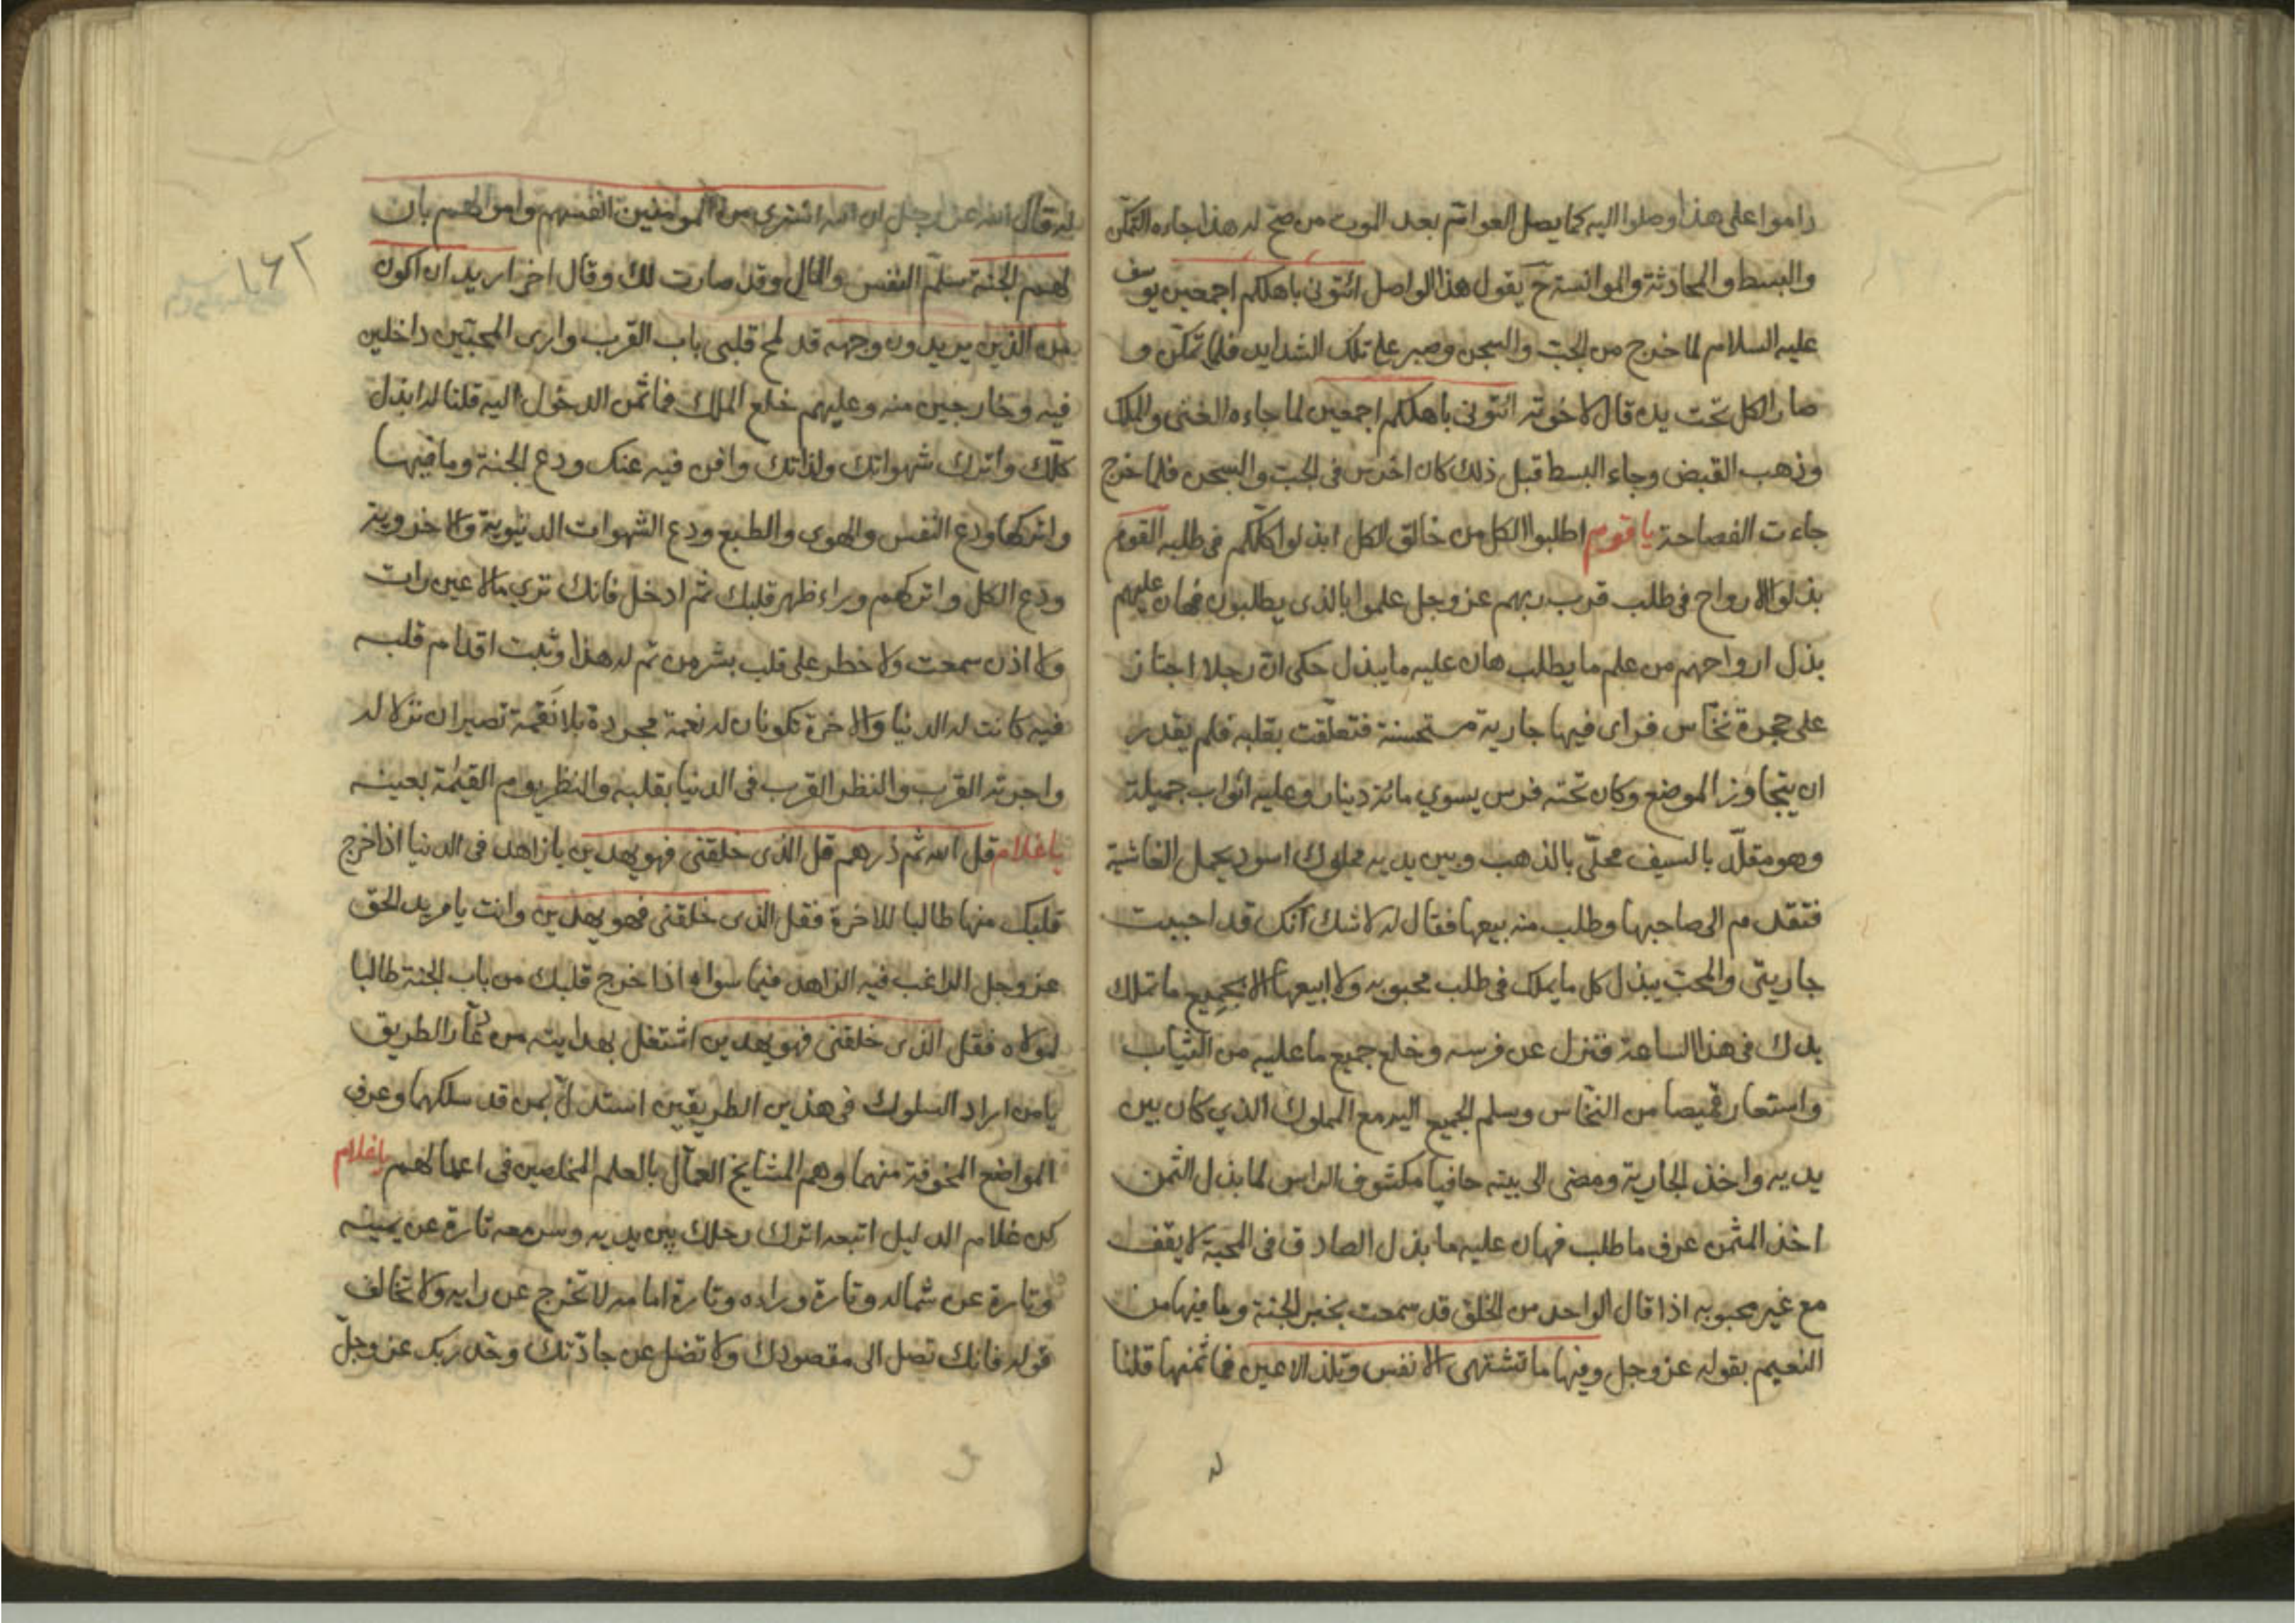 داموا على هذا وصلوا اليه كما يصل العوام بعد الموت من صح له هذا جاءه التمكن
والبسط والمحادثة والموانسة ح يقول هذا الواصل ائتونى باهلكم اجمعين يوسف
عليه السلام لما خرج من الجب والسجن وصبر على تلك الشدايد فلما تمكن و
صار الكل تحت يده قال لاخوته ائتونى باهلكم اجمعين لما جاءه الغنى والملك
وذهب القبض وجاء البسط قبل ذلك كان اخرس فى الجب والسجن فلما خرج
جاءت الفصاحة يا قوم اطلبوا الكل من خالق الكل ابذلوا كلكم فى طلبه القوم
بذلوا الارواح فى طلب قرب ربهم عز وجل علموا بالذى يطلبون فهان عليهم
بذل ارواحهم من علم ما يطلب هان عليه ما يبذل حكى ان رجلا اجتاز
على حجرة نخاس فراى فيها جارية مستحسنة فتعلقت بقلبه فلم يقدر
ان يتجاوز الموضع وكان تحته فرس يسوي مائة دينار وعليه اثواب جميلة
وهو مقلد بالسيف محلى بالذهب وبين يديه مملوك اسود يحمل الغاشية
فتقدم الى صاحبها وطلب منه بيعها فقال له لا شك انك قد احببت
جاريتى والمحب يبذل كل ما يملك فى طلب محبوبه ولا ابيعها الا بجميع ما تملك
يدك فى هذا الساعة فنزل عن فرسه وخلع جميع ما عليه من الثياب
واستعار قميصا من النخاس وسلم الجميع اليه مع المملوك الذي كان بين
يديه واخذ الجارية ومضى الى بيته حافيا مكشوف الراس لما بذل الثمن
اخذ المثمن عرف ما طلب فهان عليه ما بذل الصادق فى المحبة لا يقف
مع غير محبوبه اذا قال الواحد من الخلق قد سمعت بخبر الجنة وما فيها من
النعيم بقوله عز وجل وفيها ما تشتهى الانفس وتلذ الاعين فما ثمنها قلنا
له
له قال الله عز وجل ان الله اشترى من المؤمنين انفسهم واموالهم بان
لهم الجنة سلم النفس والمال وقد صارت لك وقال اخر اريد ان اكون
من الذين يريدون وجهه قد لمح قلبى باب القرب وارى المحبين داخلين
فيه وخارجين منه وعليهم خلع الملك فما ثمن الدخول اليه قلنا له ابذل
كلك واترك شهواتك ولذاتك وافن فيه عنك ودع الجنة وما فيها
واتركها ودع النفس والهوى والطبع ودع الشهوات الدنيوية والاخروية
ودع الكل واتركهم وراء ظهر قلبك ثم ادخل فانك ترى ما لا عين رات
ولا اذن سمعت ولا خطر على قلب بشر من تم له هذا وثبت اقدام قلبه
فيه كانت له الدنيا والاخرة تكونان له نعمة مجردة بلا نقمة تصيران نزلا له
واجرته القرب والنظر القرب فى الدنيا بقلبه والنظر يوم القيمة بعينه
يا غلام قل الله ثم ذرهم قل الذى خلقنى فهو يهدين يا زاهد فى الدنيا اذا خرج
قلبك منها طالبا للاخرة فقل الذى خلقنى فهو يهدين وانت يا مريد الحق
عز وجل الراغب فيه الزاهد فيما سواه اذا خرج قلبك من باب الجنة طالبا
لمولاه فقل الذى خلقنى فهو يهدين اشتغل بهدايته من الطريق
يا من اراد السلوك فى هذين الطريقين استدل بمن قد سلكهما وعرف
المواضع المخوفة منهما وهم المشايخ العمال بالعلم المخلصين فى اعمالهم يا غلام
كن غلام الدليل اتبعه اترك رحلك بين يديه وسر معه تارة عن يمينه
وتارة عن شماله وتارة وراءه وتارة امامه لا تخرج عن رايه ولا تخالف
قوله فانك تصل الى مقصودك ولا تضل عن جادتك وحد ربك عز وجل
١٦٢